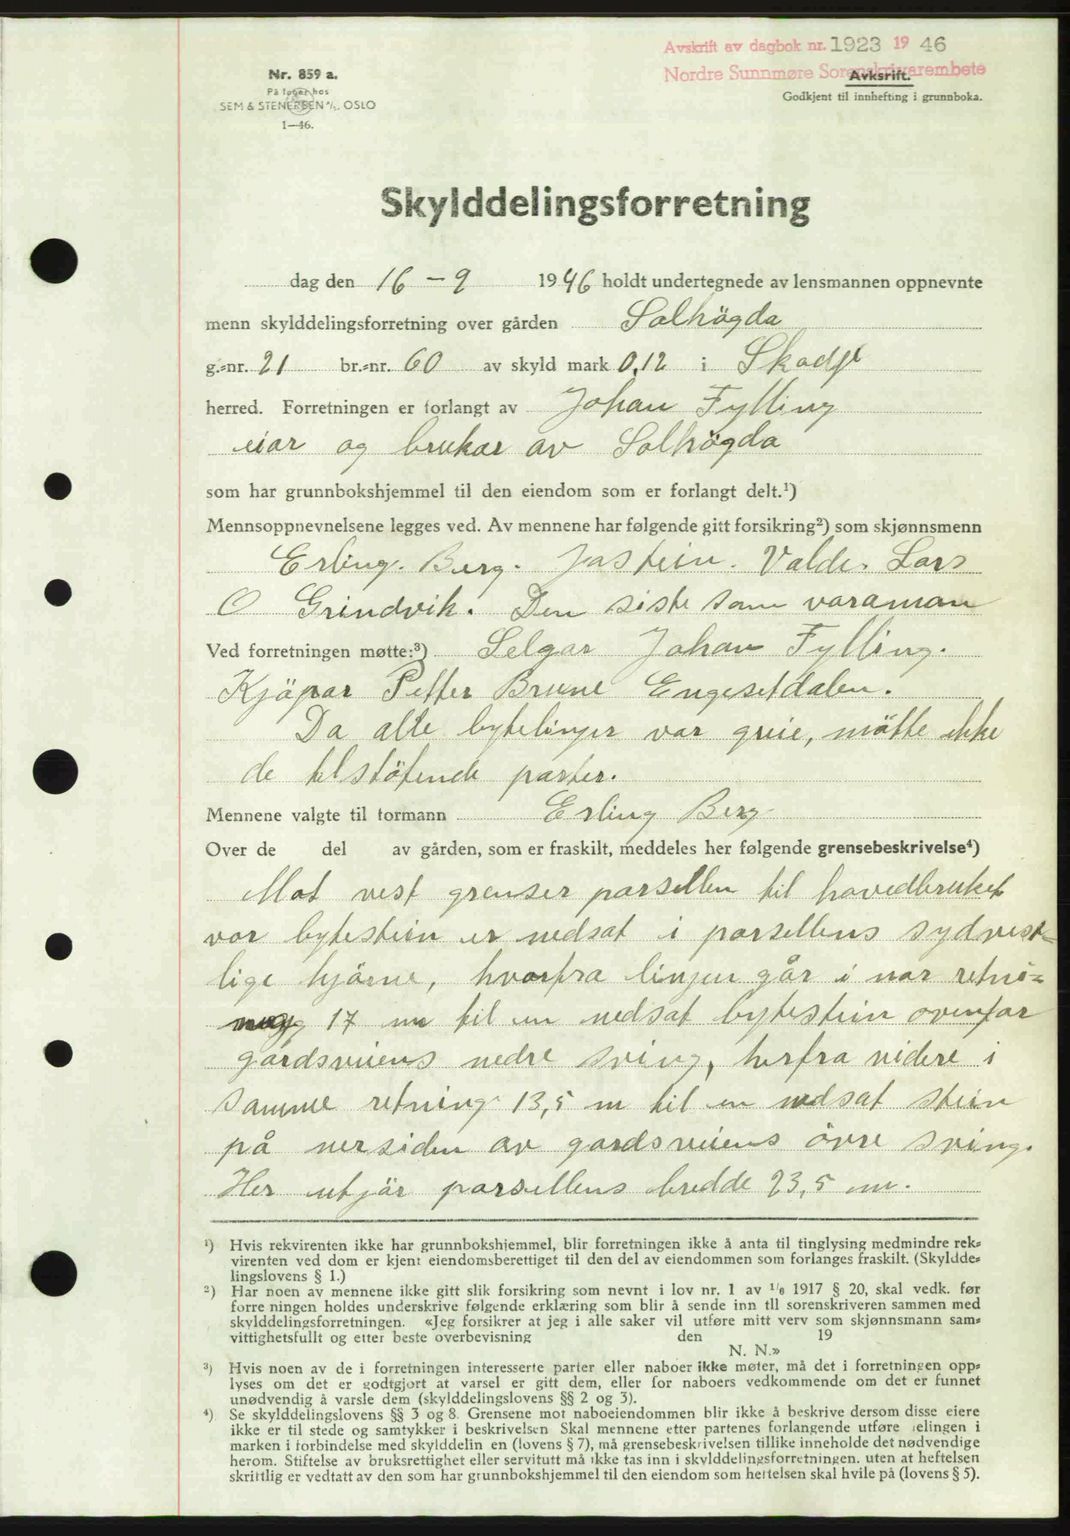 Avskrift av dagbok nr. 1923 19 46
Nordre Sunnmøre Sorenskrivarembete
Nr. 859 a.
På lager hos
SEM & STENERSEN A/S. OSLO
1—46.
Avskrift.
Godkjent til innhefting i grunnboka.
Skylddelingsforretning
dag den 16 - 9 1946 holdt undertegnede av lensmannen oppnevnte
menn skylddelingsforretning over gården Solhögda
g.=nr. 21 br.=nr. 60 av skyld mark 0,12 i Skodje
herred. Forretningen er forlangt av Johan Fylling
eiar og brukar av Solhögda
som har grunnbokshjemmel til den eiendom som er forlangt delt.¹)
Mennsoppnevnelsene legges ved. Av mennene har følgende gitt forsikring²) som skjønnsmenn
Erling. Berg. Jostein. Valde. Lars
O Grindvik. Den siste som varaman
Ved forretningen møtte:³) Selgar Johan Fylling.
Kjöpar Petter Brune Engesetdalen.
Da alle bytelinjer var greie, mötte ikke
de tilstötende parter.
Mennene valgte til formann Erling Berg
Over de del av gården, som er fraskilt, meddeles her følgende grensebeskrivelse⁴)
Mot vest grenser parsellen til hovedbruket
vor bytestein er nedsat i parsellens sydvest=
lige hjörne, hvorfra linjen går i nor retni=
ng 17 m til en nedsat bytestein ovenfor
gårdsveiens nedre sving, herfra videre i
samme retning 13,5 m til en nedsat stein
på nersiden av gardsveiens övre sving.
Her utjör parsellens bredde 23,5 m.
¹) Hvis rekvirenten ikke har grunnbokshjemmel, blir forretningen ikke å anta til tinglysing medmindre rek=
virenten ved dom er kjent eiendomsberettiget til den del av eiendommen som forlanges fraskilt. (Skyldde=
lingslovens § 1.)
²) Har noen av mennene ikke gitt slik forsikring som nevnt i lov nr. 1 av 1/6 1917 § 20, skal vedk. før
forre ningen holdes underskrive følgende erklæring som blir å sende inn til sorenskriveren sammen med
skylddelingsforretningen. «Jeg forsikrer at jeg i alle saker vil utføre mitt verv som skjønnsmann sam=
vittighetsfullt og etter beste overbevisning den 19
N. N.»
³) Hvis noen av de i forretningen interesserte parter eller naboer ikke møter, må det i forretningen opp=
lyses om det er godtgjort at varsel er gitt dem, eller for naboers vedkommende om det er funnet
unødvendig å varsle dem (skylddelingslovens §§ 2 og 3).
⁴) Se skylddelingslovens §§ 3 og 8. Grensene mot naboeiendommen blir ikke å beskrive dersom disse eiere
ikke er til stede og samtykker i beskrivelsen Skal mennene etter partenes forlangende utføre elingen i
marken i forbindelse med skylddelin en (lovens § 7), må grensebeskrivelsen tillike inneholde det nødvendige
herom. Stiftelse av bruksrettighet eller servitutt må ikke tas inn i skylddelingsforretningen. uten at heftelsen
skriftlig er vedtatt av den som har grunnbokshjemmel til den eiendom som heftelsen skal hvile på (lovens § 5).